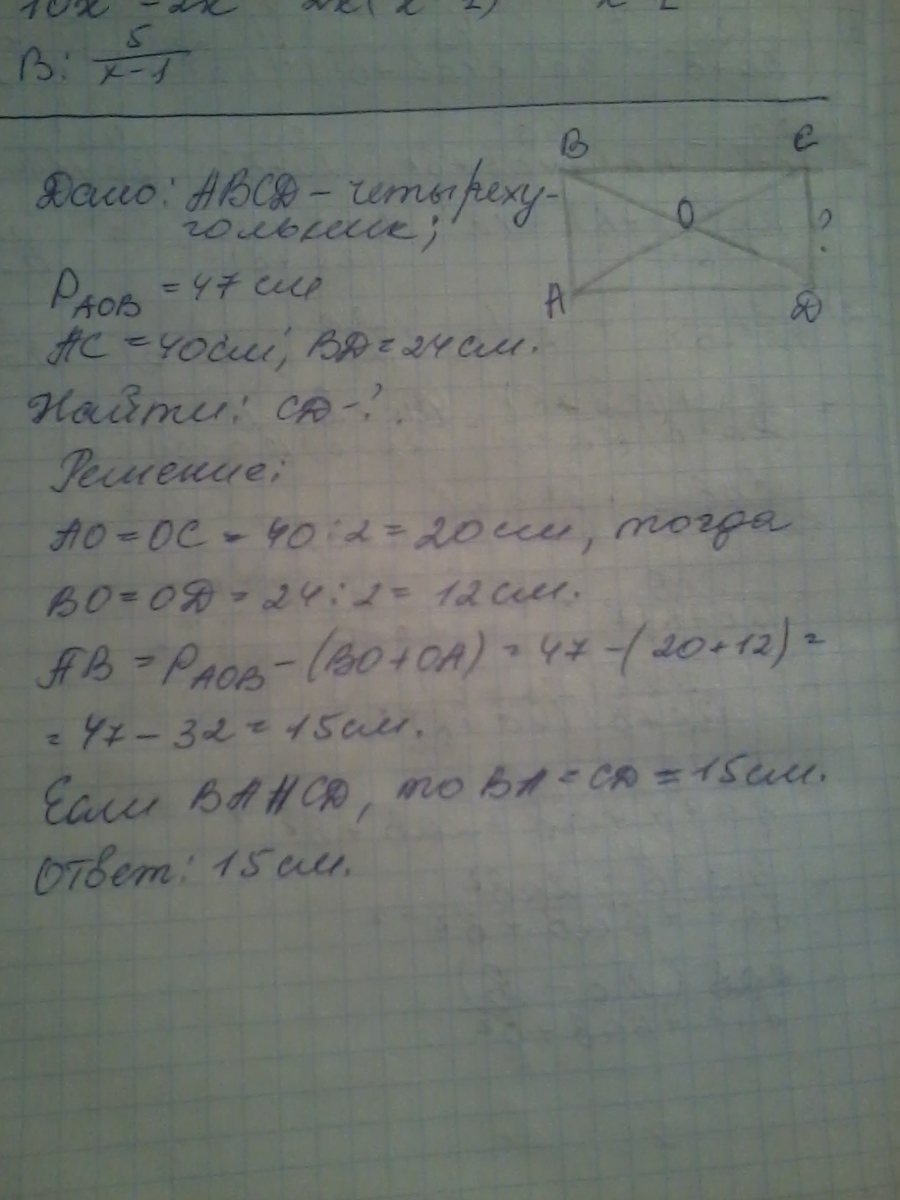 B: 5/(x-1)
B C
Дано: ABCD – четыреху-
гольник;
O ?
A D
P_AOB = 47 см
AC = 40 см; BD = 24 см.
Найти: CD - ?
Решение:
AO = OC = 40 : 2 = 20 см, тогда
BO = OD = 24 : 2 = 12 см.
AB = P_AOB – (BO + OA) = 47 – (20 + 12) =
= 47 – 32 = 15 см.
Если BA || CD, то BA = CD = 15 см.
Ответ: 15 см.